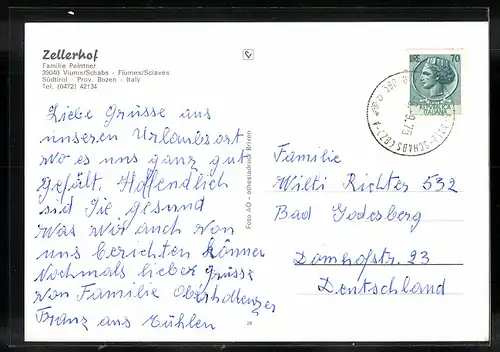 Zellerhof
Familie Peintner
39040 Viums/Schabs - Fiumes/Sciaves
Südtirol - Prov. Bozen - Italy
Tel. (0472) 42134
Liebe Grüsse aus
unseren Urlaubsort
wo es uns ganz gut
gefält. Hoffendlich
sid Sie gesund
was wir auch von
uns berichten können
Nochmals lieber Grüsse
von Familie
Franz aus Mühlen
Foto AO - athesiadruck Brixen
28
LIRE 70
ITALIANA
Familie
Wilti Richter 532
Bad Godesberg
Domhofstr. 23
Deutschland